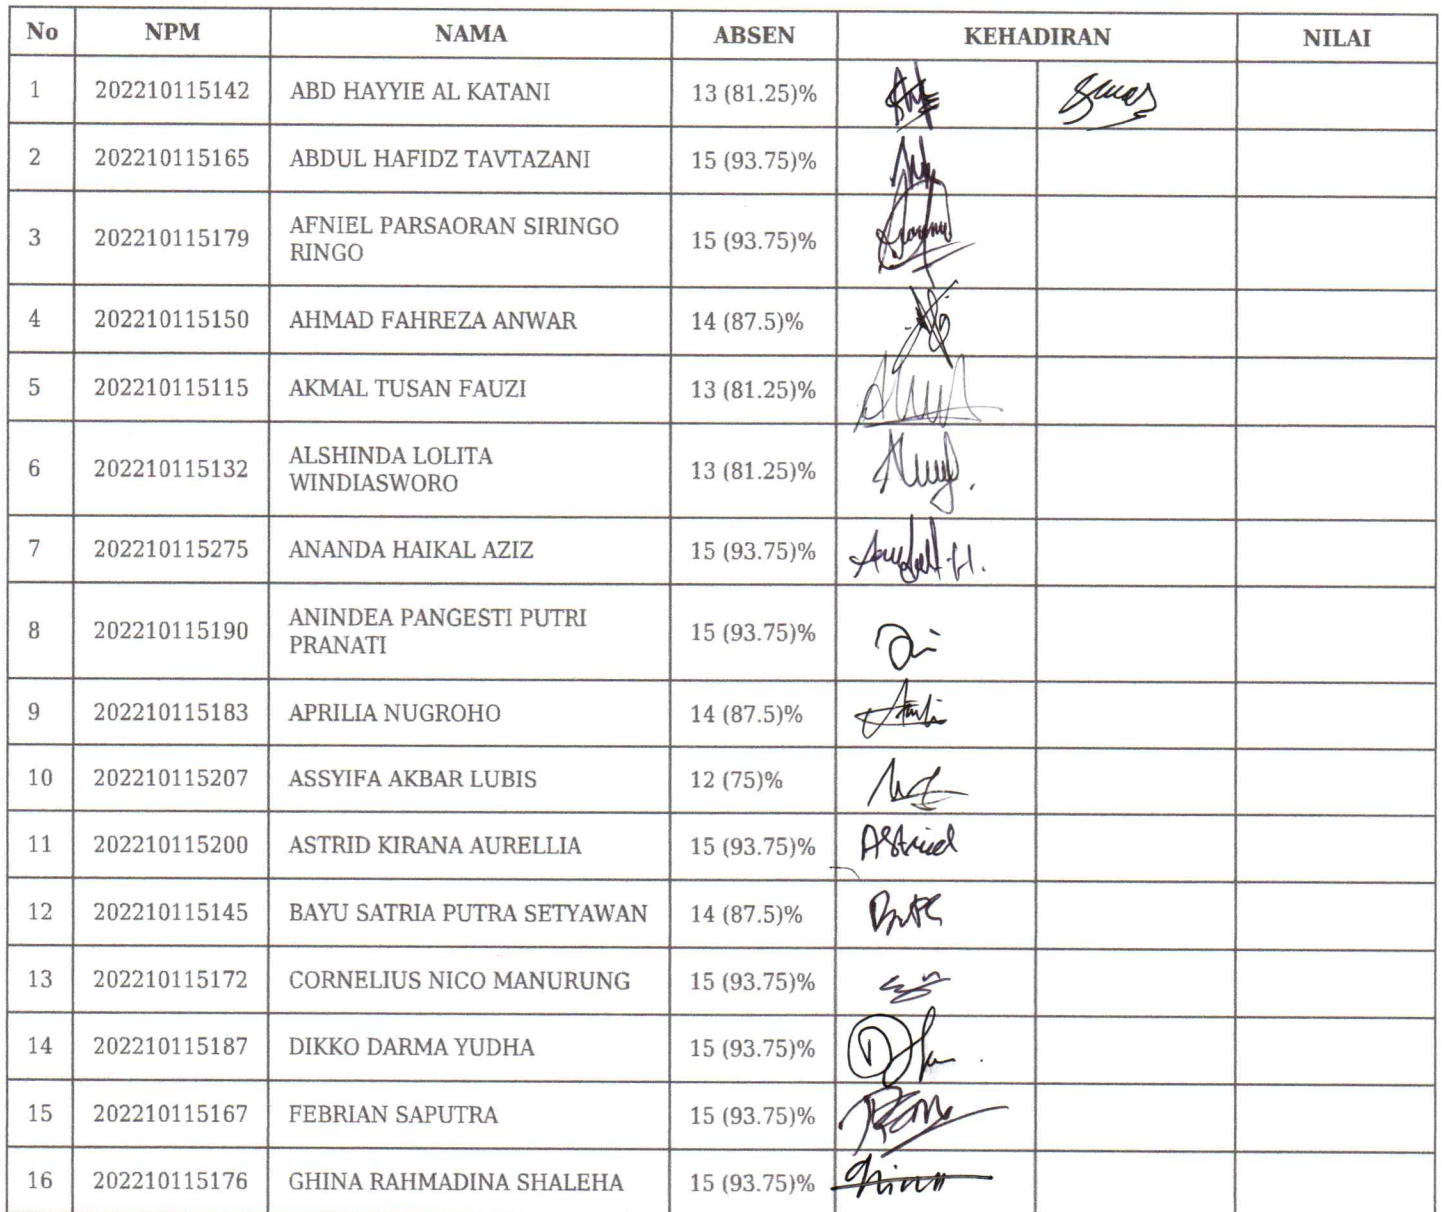 No NPM NAMA ABSEN KEHADIRAN NILAI
1 202210115142 ABD HAYYIE AL KATANI 13 (81.25)%
2 202210115165 ABDUL HAFIDZ TAVTAZANI 15 (93.75)%
3 202210115179 AFNIEL PARSAORAN SIRINGO 15 (93.75)%
RINGO
4 202210115150 AHMAD FAHREZA ANWAR 14 (87.5)%
5 202210115115 AKMAL TUSAN FAUZI 13 (81.25)%
6 202210115132 ALSHINDA LOLITA 13 (81.25)%
WINDIASWORO
7 202210115275 ANANDA HAIKAL AZIZ 15 (93.75)%
8 202210115190 ANINDEA PANGESTI PUTRI 15 (93.75)%
PRANATI
9 202210115183 APRILIA NUGROHO 14 (87.5)%
10 202210115207 ASSYIFA AKBAR LUBIS 12 (75)%
11 202210115200 ASTRID KIRANA AURELLIA 15 (93.75)% Astried
12 202210115145 BAYU SATRIA PUTRA SETYAWAN 14 (87.5)%
13 202210115172 CORNELIUS NICO MANURUNG 15 (93.75)%
14 202210115187 DIKKO DARMA YUDHA 15 (93.75)%
15 202210115167 FEBRIAN SAPUTRA 15 (93.75)%
16 202210115176 GHINA RAHMADINA SHALEHA 15 (93.75)%